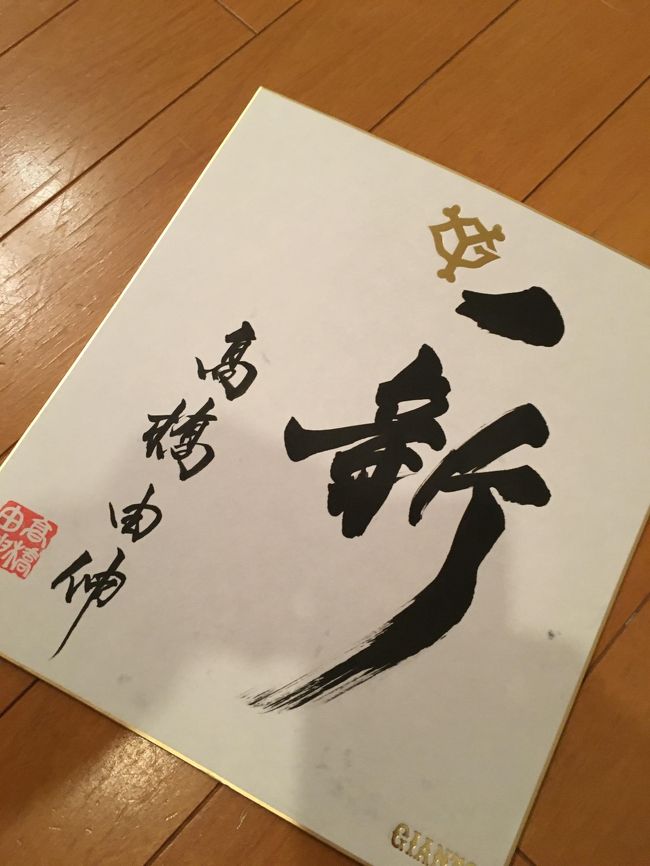 一新
高橋由伸
高橋
由伸
GIANTS